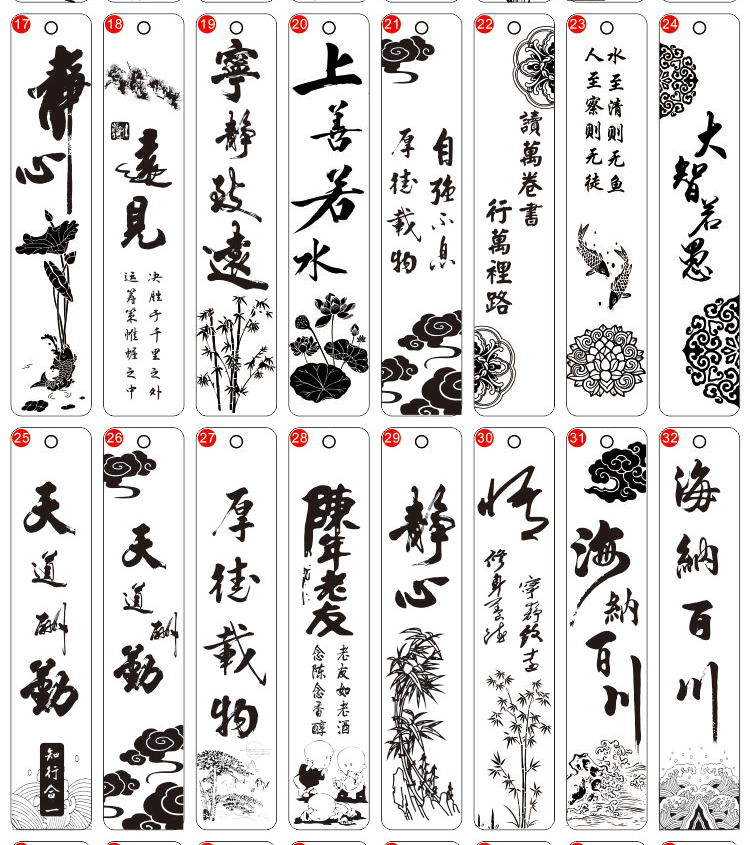 17
静心
18
遠見
决胜于千里之外
运筹策惟幄之中
19
寧静致遠
20
上善若水
21
自强不息
厚德載物
22
讀萬卷書
行萬裡路
23
水至清则无鱼
人至察则无徒
24
大智若愚
25
天道酬勤
知行合一
26
天道酬勤
27
厚德載物
28
陳年老友
老友如老酒
念陈念香醇
29
静心
30
悟
寧静致远
修身养德
31
海納百川
32
海納百川